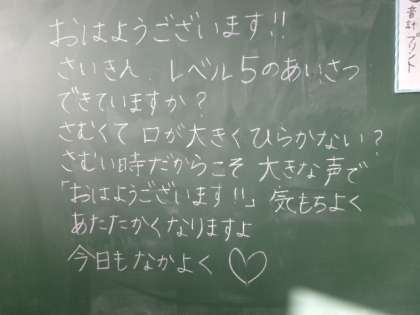 おはようございます!!
さいきん レベル5のあいさつ
できていますか?
さむくて 口が大きくひらかない?
さむい時だからこそ 大きな声で
「おはようございます!!」 気もちよく
あたたかくなりますよ
今日もなかよく ♡
プリント